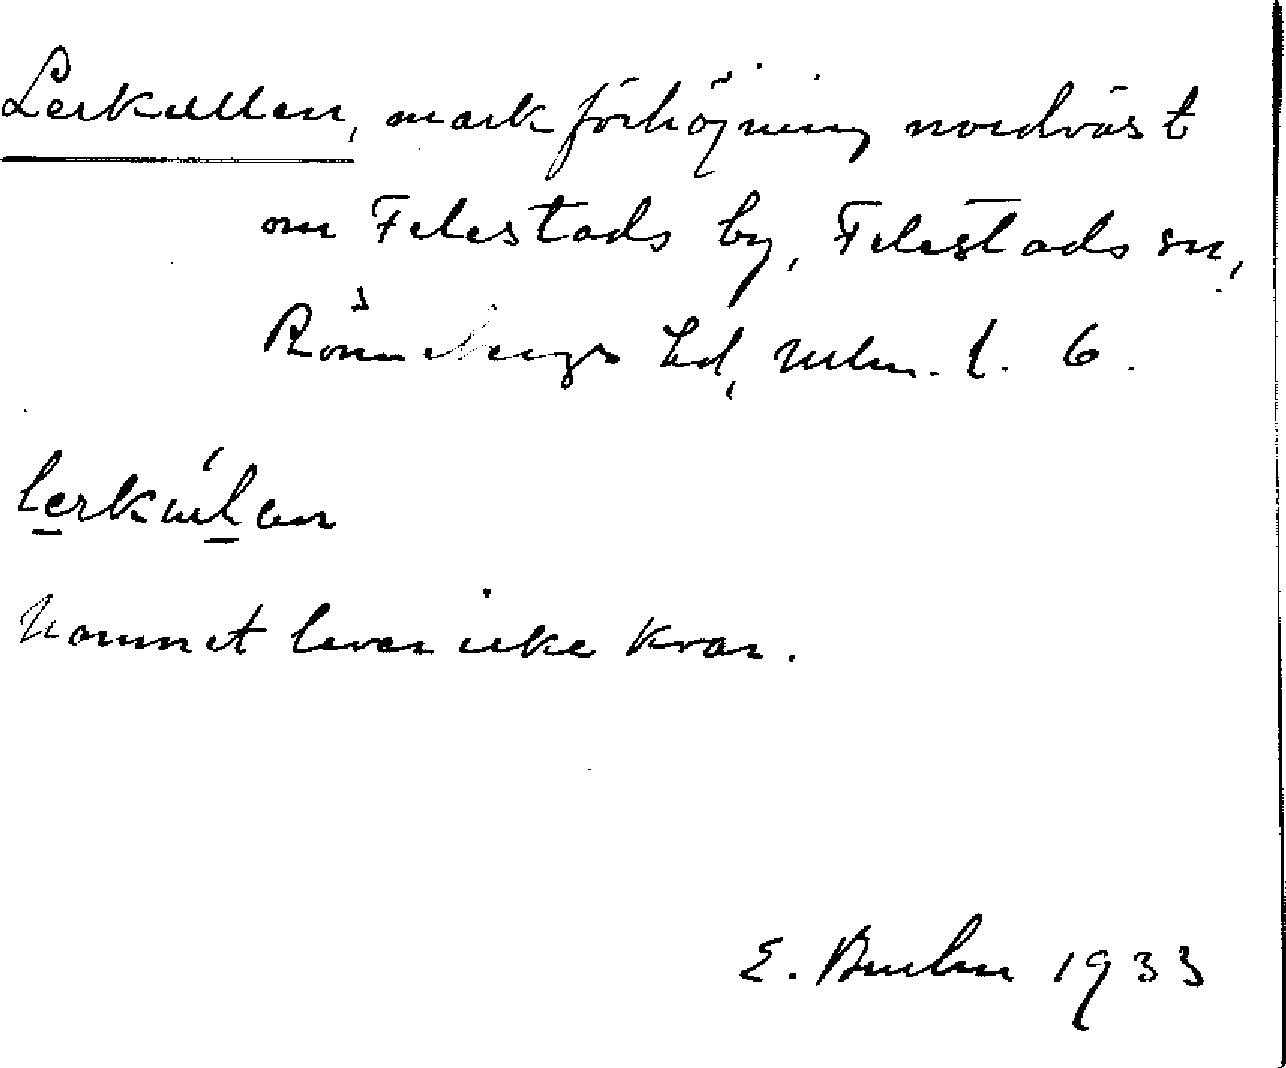 Lerkullen, markförhöjning nordväst
om Felestads by, Felestads sn,
Rönnebergs hd, Mlm. l. 6.
lerkulan
Namnet lever icke kvar.
E. 1933